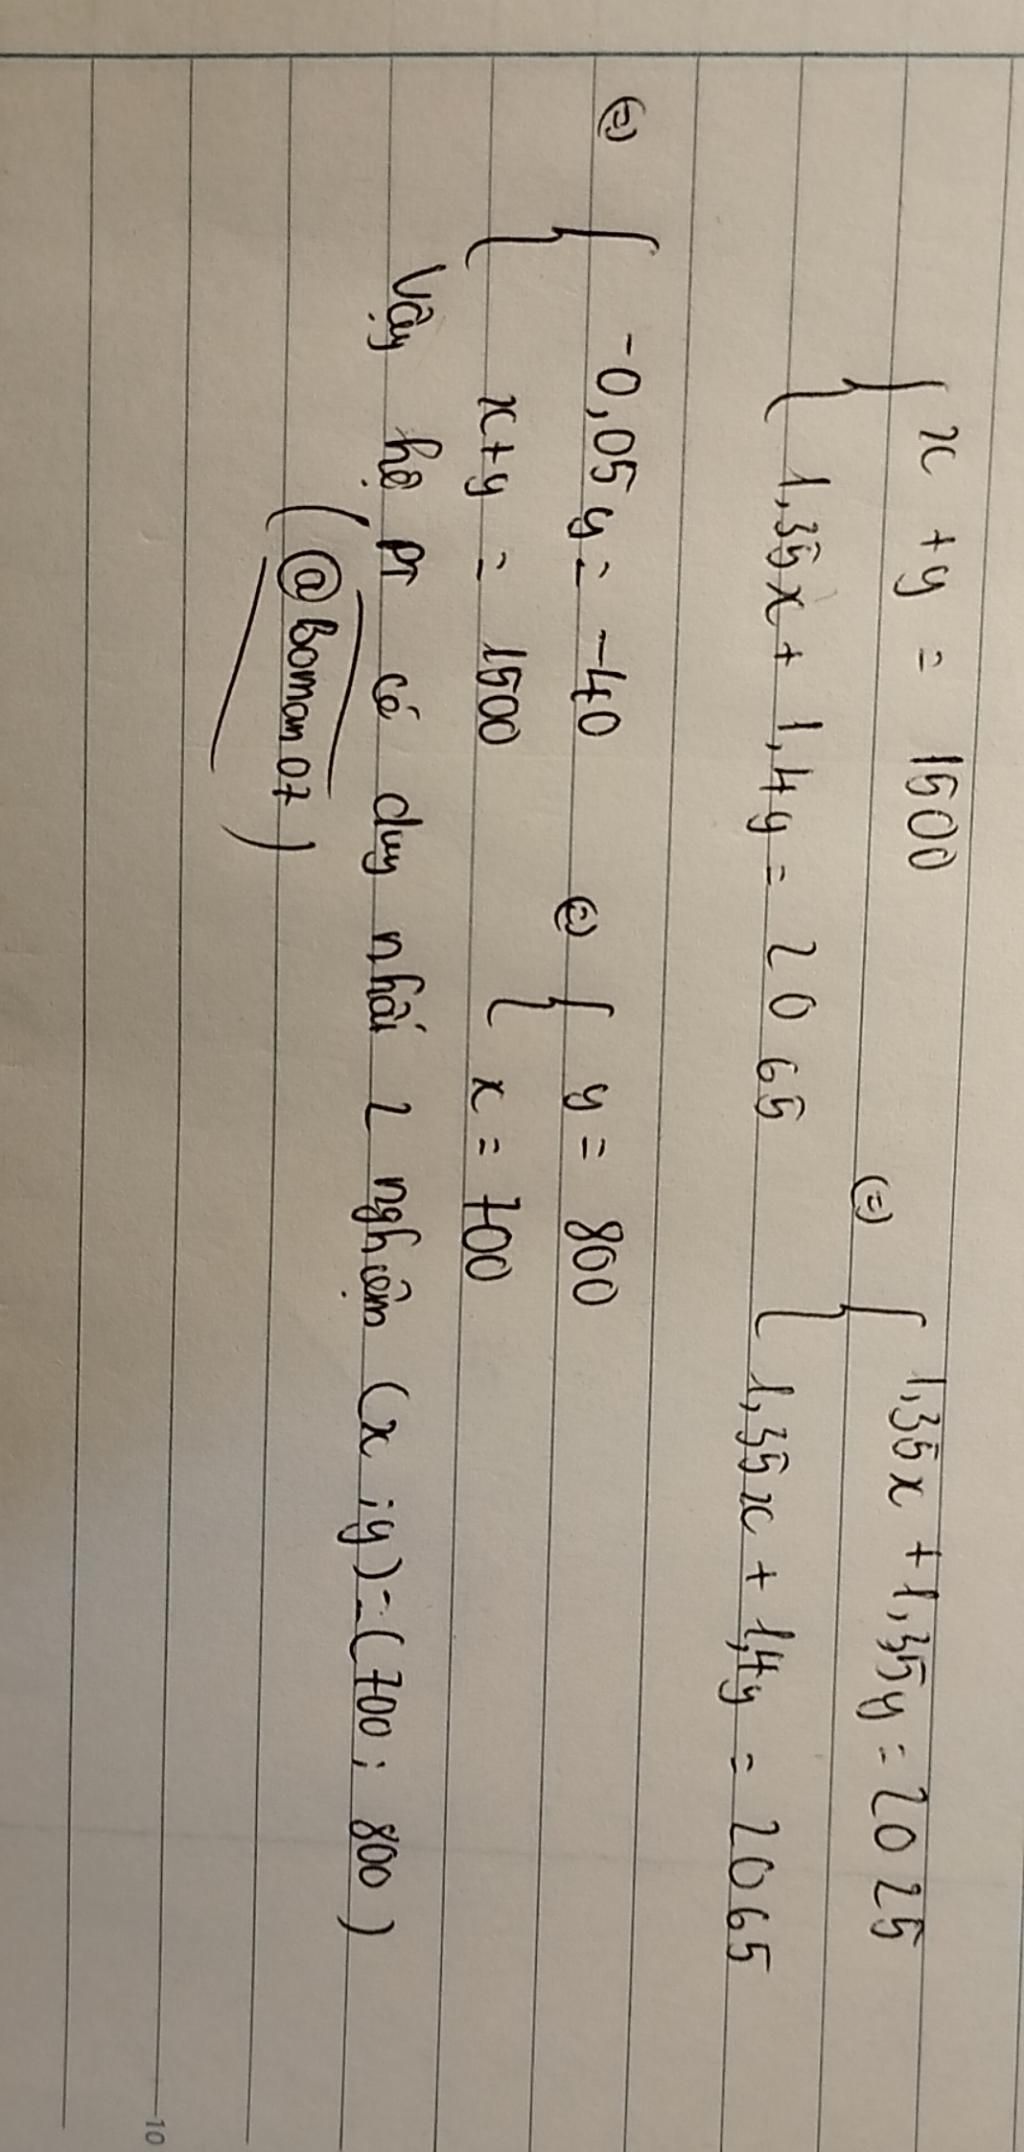 { x + y = 1500
{ 1,35x + 1,4y = 2065
(=) { 1,35x + 1,35y = 2025
{ 1,35x + 1,4y = 2065
(=) { -0,05y = -40
{ x+y = 1500
(=) { y = 800
{ x = 700
Vậy hệ PT có duy nhất 2 nghiệm (x ; y) = (700 ; 800)
(@Boman07)
10